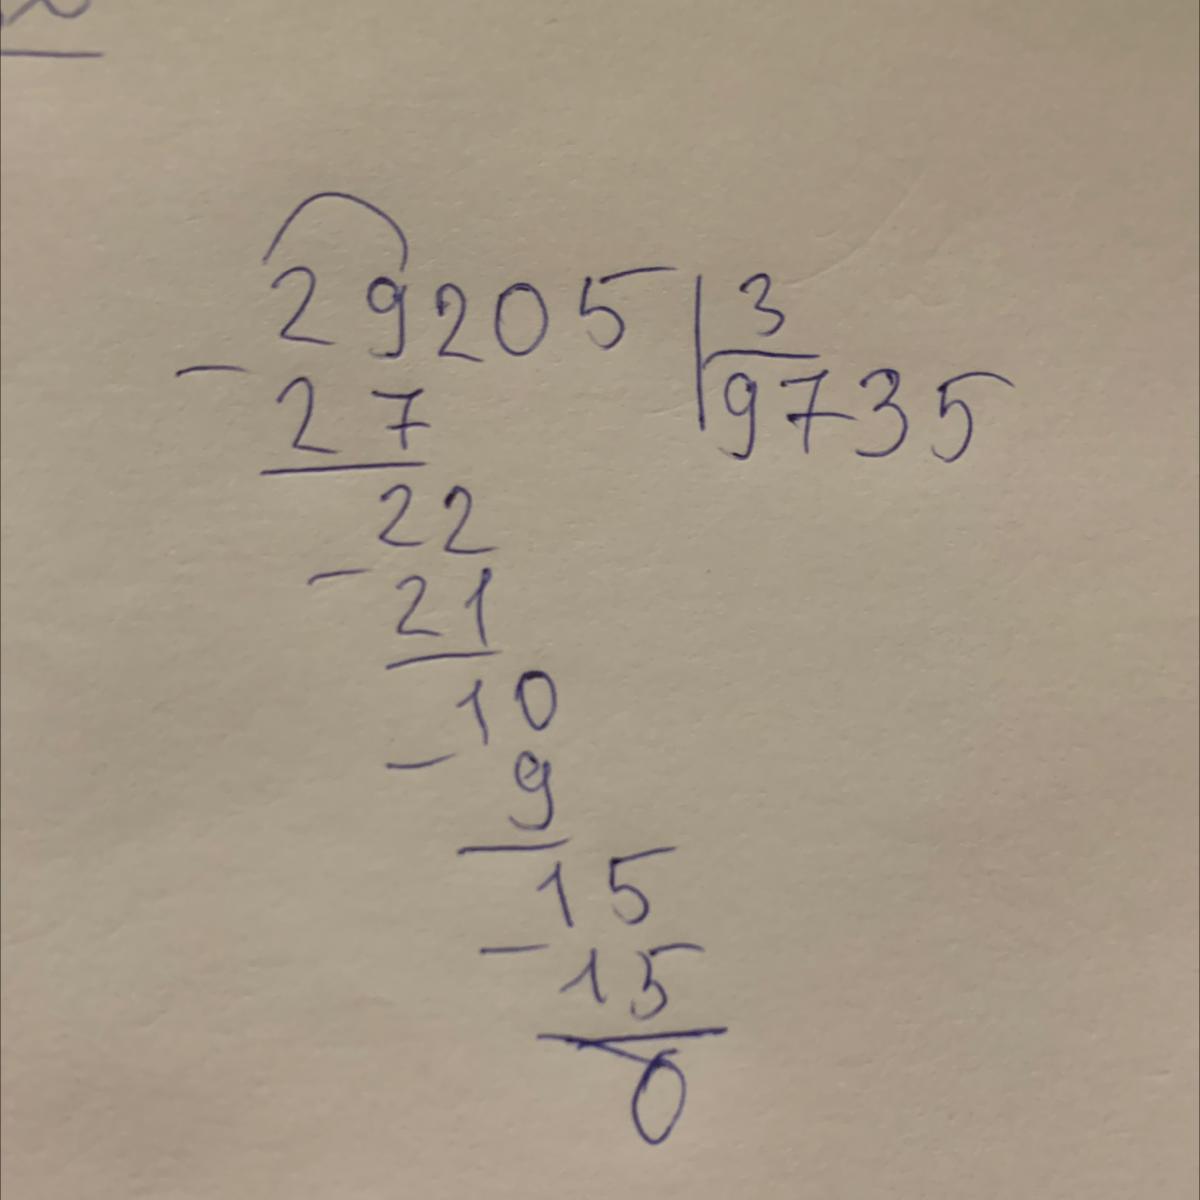 29205 | 3
- 27 | 9735
22
- 21
10
- 9
15
- 15
0